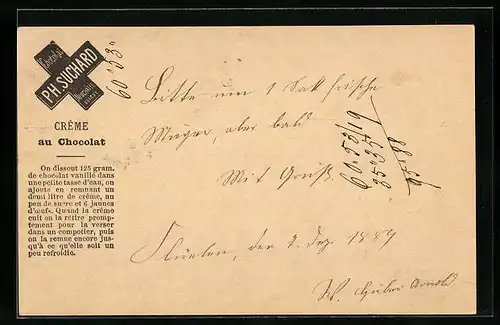 Chocolat
PH. SUCHARD
CRÊME
au Chocolat
On dissout 125 gram.
de chocolat vanillé dans
une petite tasse d'eau, on
ajoute en remuant un
demi litre de crême, un
peu de sucre et 6 jaunes
d'œufs. Quand la crême
cuit on la retire promp-
tement pour la verser
dans un compotier, puis
on la remue encore jus-
qu'à ce qu'elle soit un
peu refroidie.
60 53
Bitte um 1 Sack frische
aber bald
Mit Gruß
60.53/19
35.35
Flüelen, den 2. Dez. 1889
Huber Arnold